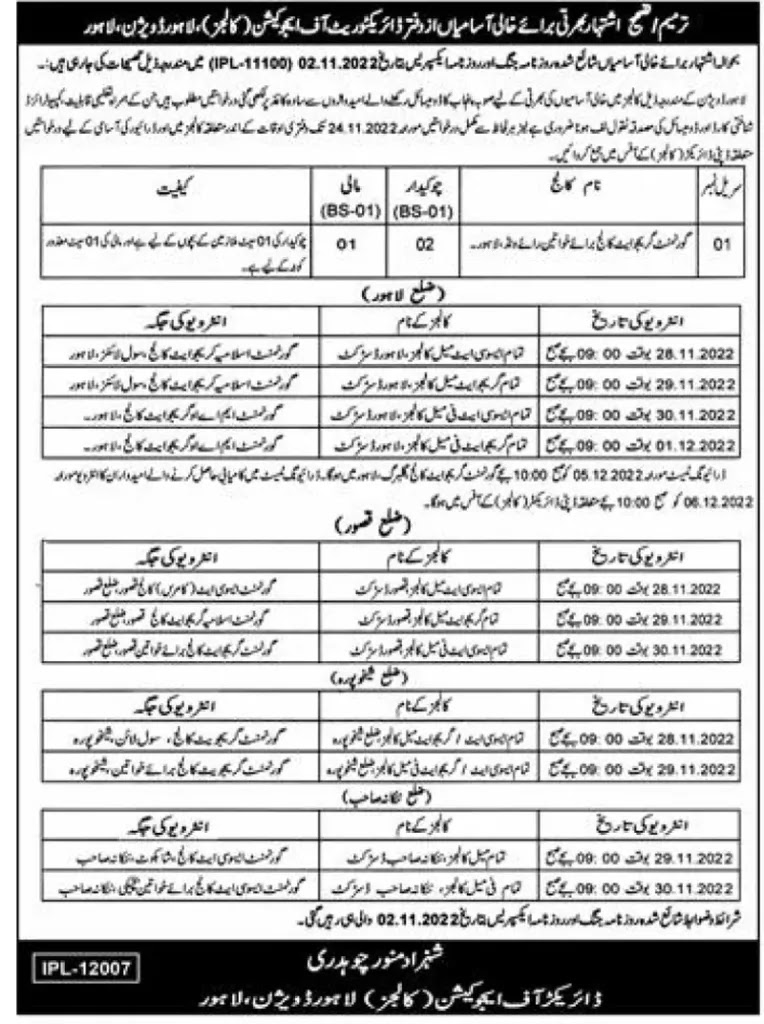 ترمیم / تصحیح اشتہار بھرتی برائے خالی آسامیاں از دفتر ڈائریکٹوریٹ آف ایجوکیشن (کالجز)، لاہور ڈویژن، لاہور
بحوالہ اشتہار برائے خالی آسامیاں شائع شدہ روزنامہ جنگ اور روزنامہ ایکسپریس بتاریخ 02.11.2022 (IPL-11100) میں مندرجہ ذیل تصحیحات کی جا رہی ہیں:۔
لاہور ڈویژن کے مندرجہ ذیل کالجز میں خالی آسامیوں کی بھرتی کے لیے صوبہ پنجاب کا ڈومیسائل رکھنے والے امیدواروں سے سادہ کاغذ پر لکھی گئی درخواستیں مطلوب ہیں جن کے ہمراہ تعلیمی قابلیت، کمپیوٹرائزڈ
شناختی کارڈ اور ڈومیسائل کی مصدقہ نقول لف ہونا ضروری ہے نیز ہر لحاظ سے مکمل درخواستیں مورخہ 24.11.2022 تک دفتری اوقات کے اندر متعلقہ کالجز میں اور ڈرائیور کی آسامی کے لیے درخواستیں
متعلقہ ڈپٹی ڈائریکٹر (کالجز) کے آفس میں جمع کروائیں۔
سریل نمبر نام کالج چوکیدار (BS-01) مالی (BS-01) کیفیت
01 گورنمنٹ گریجوایٹ کالج برائے خواتین رائے ونڈ، لاہور۔ 02 01 چوکیدار کی 01 سیٹ ملازمین کے بچوں کے لیے ہے اور مالی کی 01 سیٹ معذور
کوٹہ کے لیے ہے۔
(ضلع لاہور)
انٹرویو کی تاریخ کالجز کے نام انٹرویو کی جگہ
28.11.2022 بوقت 09:00 بجے صبح تمام ایسوسی ایٹ میل کالجز، لاہور ڈسٹرکٹ گورنمنٹ اسلامیہ گریجوایٹ کالج، سول لائنز، لاہور
29.11.2022 بوقت 09:00 بجے صبح تمام گریجوایٹ میل کالجز، لاہور ڈسٹرکٹ گورنمنٹ اسلامیہ گریجوایٹ کالج، سول لائنز، لاہور
30.11.2022 بوقت 09:00 بجے صبح تمام ایسوسی ایٹ فی میل کالجز، لاہور ڈسٹرکٹ گورنمنٹ ایم اے او گریجوایٹ کالج، لاہور۔
01.12.2022 بوقت 09:00 بجے صبح تمام گریجوایٹ فی میل کالجز، لاہور ڈسٹرکٹ گورنمنٹ ایم اے او گریجوایٹ کالج، لاہور۔
ڈرائیونگ ٹیسٹ مورخہ 05.12.2022 کو صبح 10:00 بجے گورنمنٹ گریجوایٹ کالج گلبرگ، لاہور میں ہوگا۔ ڈرائیونگ ٹیسٹ میں کامیابی حاصل کرنے والے امیدواران کا انٹرویو مورخہ
06.12.2022 کو صبح 10:00 بجے متعلقہ ڈپٹی ڈائریکٹر (کالجز) کے آفس میں ہوگا۔
(ضلع قصور)
انٹرویو کی تاریخ کالجز کے نام انٹرویو کی جگہ
28.11.2022 بوقت 09:00 بجے صبح تمام ایسوسی ایٹ میل کالجز، قصور ڈسٹرکٹ گورنمنٹ ایسوسی ایٹ (کامرس) کالج قصور، ضلع قصور
29.11.2022 بوقت 09:00 بجے صبح تمام گریجوایٹ میل کالجز، قصور ڈسٹرکٹ گورنمنٹ اسلامیہ گریجوایٹ کالج قصور، ضلع قصور
30.11.2022 بوقت 09:00 بجے صبح تمام ایسوسی ایٹ فی میل کالجز، قصور ڈسٹرکٹ گورنمنٹ گریجوایٹ کالج برائے خواتین قصور، ضلع قصور
(ضلع شیخوپورہ)
انٹرویو کی تاریخ کالجز کے نام انٹرویو کی جگہ
28.11.2022 بوقت 09:00 بجے صبح تمام ایسوسی ایٹ / گریجوایٹ میل کالجز، ضلع شیخوپورہ گورنمنٹ گریجویٹ کالج، سول لائن، شیخوپورہ
29.11.2022 بوقت 09:00 بجے صبح تمام ایسوسی ایٹ / گریجوایٹ فی میل کالجز، ضلع شیخوپورہ گورنمنٹ گریجوایٹ کالج برائے خواتین، شیخوپورہ
(ضلع ننکانہ صاحب)
انٹرویو کی تاریخ کالجز کے نام انٹرویو کی جگہ
29.11.2022 بوقت 09:00 بجے صبح تمام میل کالجز، ننکانہ صاحب ڈسٹرکٹ گورنمنٹ ایسوسی ایٹ کالج، شاہکوٹ، ننکانہ صاحب
30.11.2022 بوقت 09:00 بجے صبح تمام فی میل کالجز، ننکانہ صاحب ڈسٹرکٹ گورنمنٹ ایسوسی ایٹ کالج برائے خواتین، ننکانہ صاحب
شرائط و ضوابط شائع شدہ روزنامہ جنگ اور روزنامہ ایکسپریس بتاریخ 02.11.2022 والی ہی رہیں گی۔
شہزاد منور چوہدری
ڈائریکٹر آف ایجوکیشن (کالجز) لاہور ڈویژن، لاہور
IPL-12007